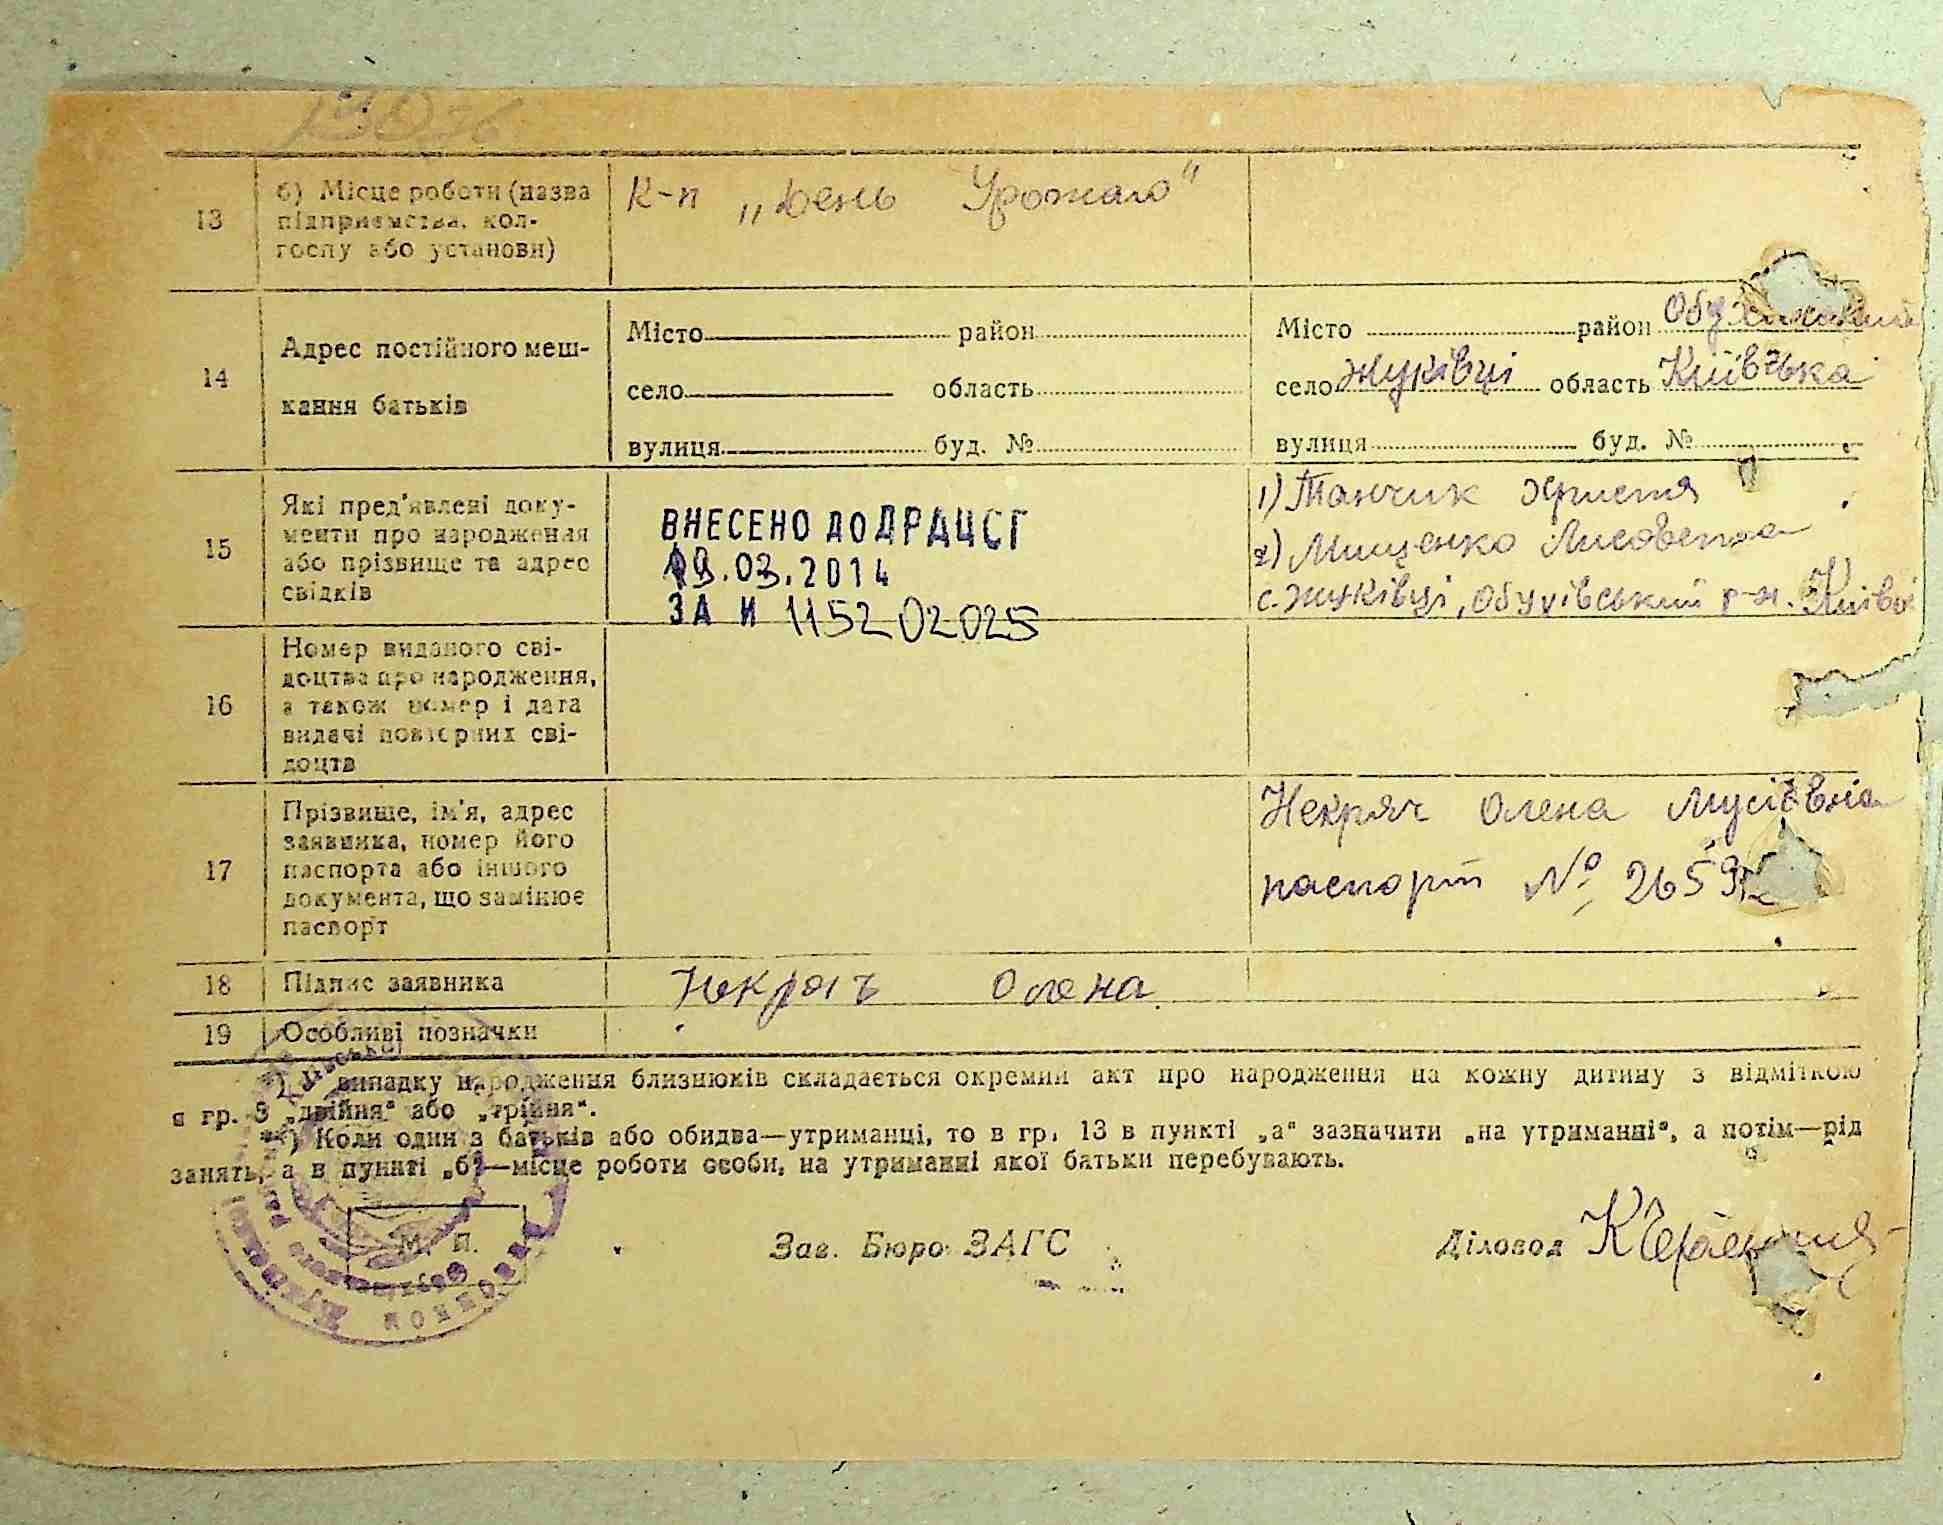 13
б) Місце роботи (назва
підприємства, кол-
госпу або установи)
К-п „День Урожаю"
14
Адрес постійного меш-
кання батьків
Місто район
село область
вулиця буд. №
Місто район
село Жуківці область Київська
вулиця буд. №
15
Які пред'явлені доку-
менти про народження
або прізвище та адрес
свідків
ВНЕСЕНО ДО ДРАЦСГ
19.03.2014
ЗА И 115202025
1) Танчик Христя
2) Мищенко Лисовета
с. Жуківці, Обухівський р-н. Київ
16
Номер виданого сві-
доцтва про народження,
а також номер і дата
видачі повторних сві-
доцтв
17
Прізвище, ім'я, адрес
заявника, номер його
паспорта або іншого
документа, що замінює
паспорт
Некряч Олена Мусіївна
паспорт № 2659
18
Підпис заявника
Некрячъ Олена
19
Особливі позначки
випадку народження близнюків складається окремий акт про народження на кожну дитину з відміткою
в гр. 3 „двійня" або „трійня".
**) Коли один з батьків або обидва—утриманці, то в гр. 13 в пункті „а" зазначити „на утриманні", а потім—рід
занять, а в пункті „б"—місце роботи особи, на утриманні якої батьки перебувають.
М. П.
Зав. Бюро ЗАГС
Діловод